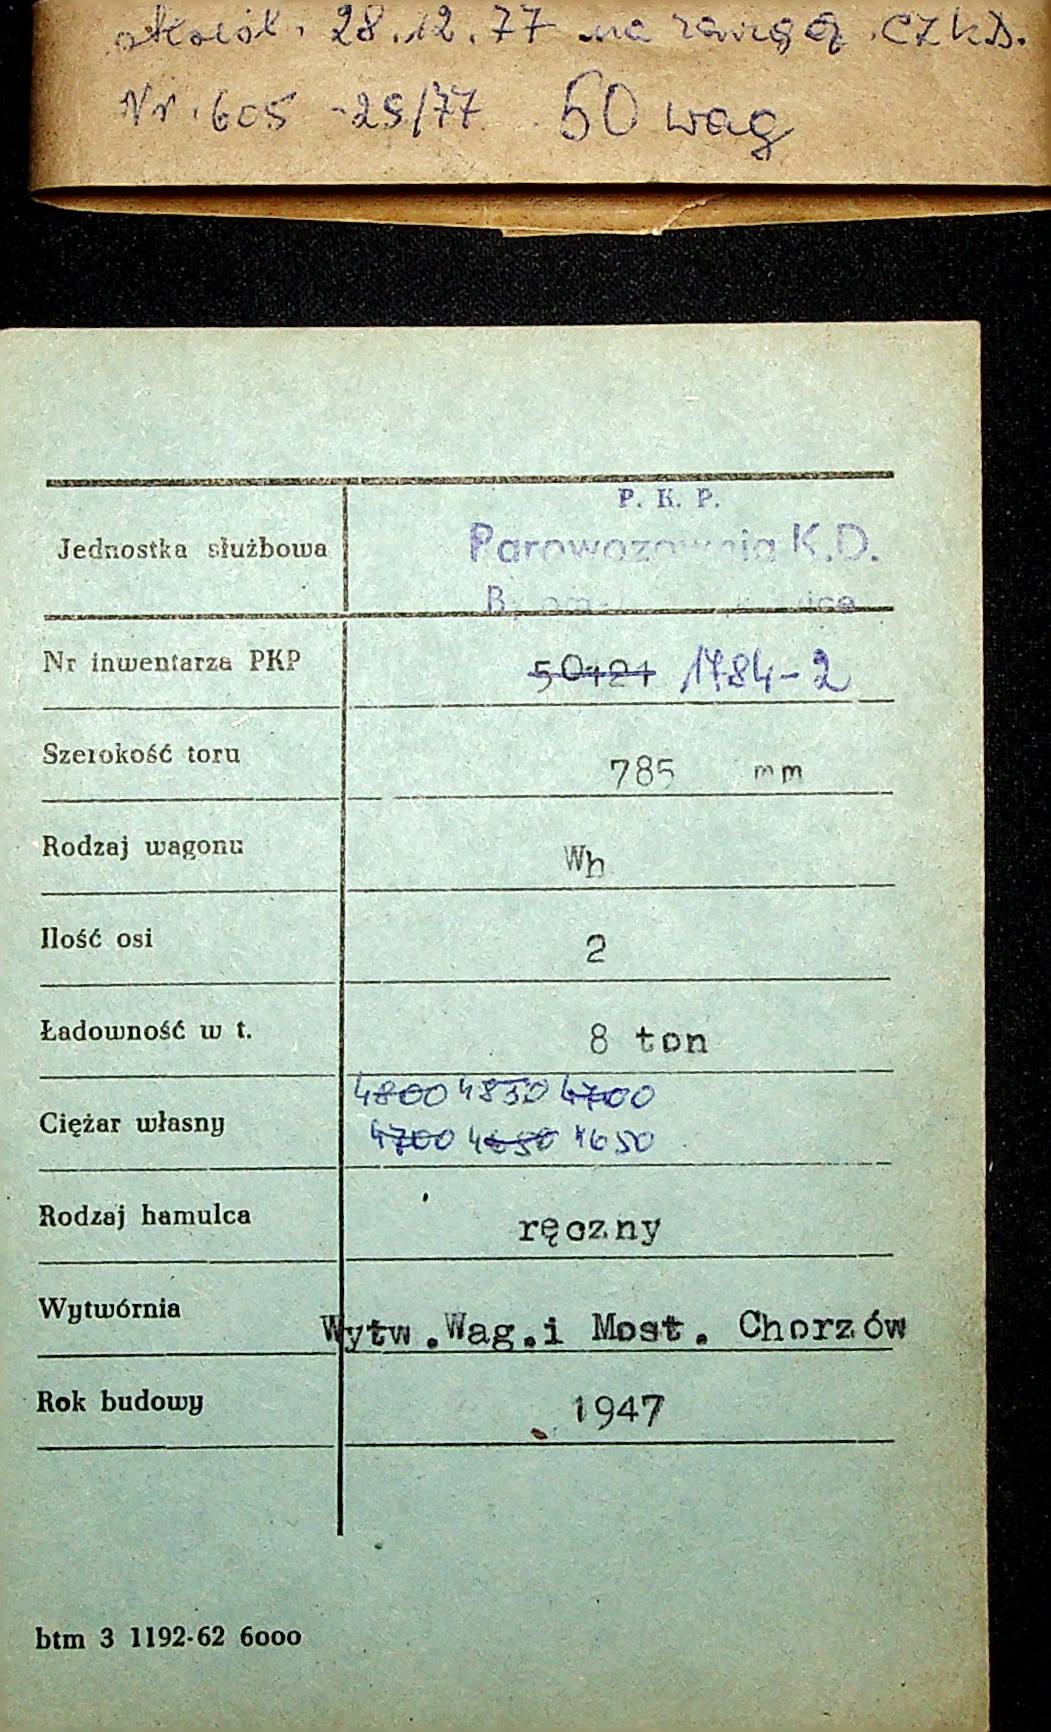 28.12.77 na CZKD.
Nr. 605 -25/77 50 wag
P. K. P.
Jednostka służbowa Parowozownia K.D.
Nr inwentarza PKP 50121 1784-2
Szerokość toru 785 mm
Rodzaj wagonu Wh
Ilość osi 2
Ładowność w t. 8 ton
4800 4850 4700
Ciężar własny 4700 4650 4650
Rodzaj hamulca ręczny
Wytwórnia Wytw.Wag.i Most. Chorzów
Rok budowy 1947
btm 3 1192-62 6000